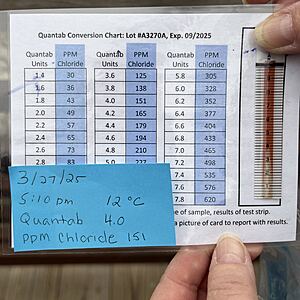 Quantab Conversion Chart: Lot #A3270A, Exp. 09/2025
Quantab Units PPM Chloride Quantab Units PPM Chloride Quantab Units PPM Chloride
1.4 30 3.6 125 5.8 305
1.6 36 3.8 138 6.0 328
1.8 43 4.0 151 6.2 352
2.0 49 4.2 165 6.4 377
2.2 57 4.4 179 6.6 404
2.4 65 4.6 194 6.8 433
2.6 73 4.8 210 7.0 465
2.8 83 5.0 227 7.2 498
7.4 535
7.6 576
7.8 620
3/27/25
5:10 pm 12 °C
Quantab 4.0
ppm Chloride 151
me of sample, results of test strip.
a picture of card to report with results.